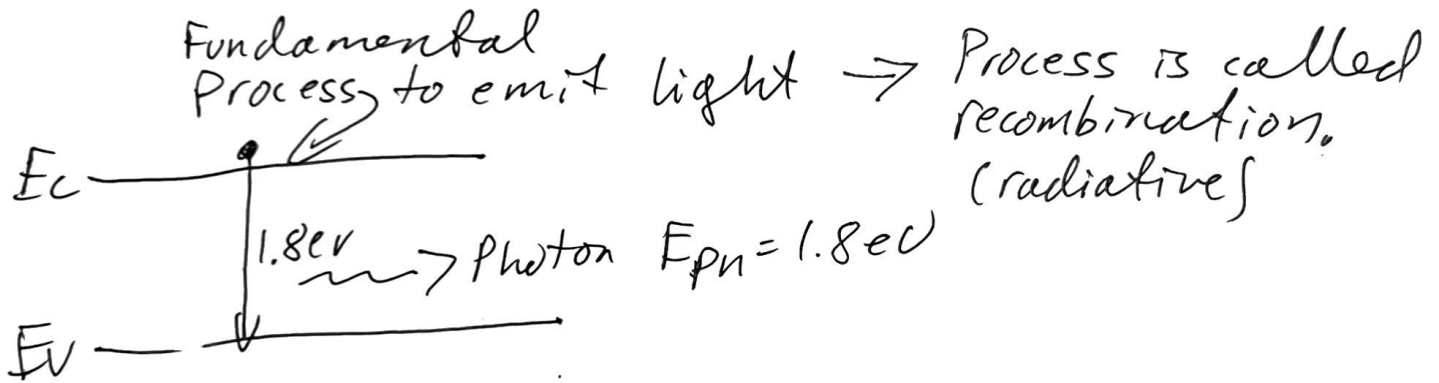 Fundamental
Process to emit light → Process is called
recombination.
(radiative)
Ec
1.8ev
Photon Eph = 1.8eV
Ev